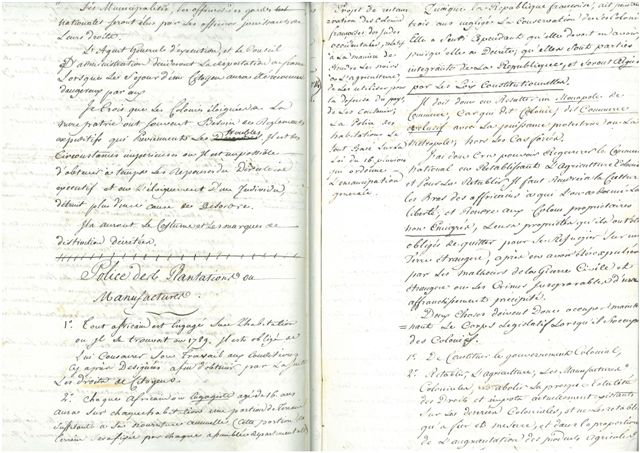 des Municipalités, des officiers de gardes
nationales seront élus par les officiers
Leurs droite.
L'agent Generale d'exposition, et le Conseil
D'administration
Lorsque le Sejour d'un Citoyen aura été reconnu
dangereux par eux
Je Crois que les Colonies Eloignées de La
mere patrie ont Souvent Besoin de Reglemens
expeditifs qui Previennent les troubles, Il est des
Circonstances imperieuses ou Il est impossible
d'obtenir a temps les Reponses du Directoire
executif et ou L'eloignement d'un Individu
detruit plus d'une cause de Desordre.
Il y auroit le Costume et les marques de
distinction décrétées.
Police des Plantations ou
Manufactures.
1°. Tout africain est Engagé Sur l'habitation
ou Il se trouvait en 1789. Il est obligé de
Lui Consacrer Son Travail aux Conditions
Cy apres Designées afin d'obtenir par La Suite
Les droits de Citoyens.
2°. Chaque Africain ou agé de 16 ans
Aura Sur chaque habitation une portion de terrein
Suffisante a Sa nourriture annuelle, Cette portion de
terrein Sera fixée par chaque assemblée Departementale
Projet de restauration
des Colonies
françaises des Indes
occidentales, relatif
à La maniere de
Rendre Les noirs
a L'agriculture,
de Les utiliser pour
la defense du pays,
de Les Contenir;
La Police des
habitations Le
tout Basé Sur la
Loi du 16 pluviose
qui ordonne
L'emancipation
generale.
Quoique la République française, ait
trois ans negligé La Conservation de Ses Colonies
Elle a Senti Cependant qu'elle devoit en avoir
puisque elle a Decreté, qu'elles Sont parties
integrantes de La République, et Seront Régies
par Les Loix Constitutionnelles.
Il doit donc en Resulter un Monopole de
Commerce, Car qui dit Colonies, dit Commerce
exclusif aura La jouissance
Metropole; hors Les Cas forcés.
J'ai donc Cru pouvoir Regenerer le Commerce
national en Retablissant L'agriculture Coloniale
et pour Les Retablir, Il faut Soumettre La Culture
les Bras des affricains a qui L'on a donné la
liberté, et Rendre aux Colons proprietaires
non Emigrés, Leurs propriétés qu'ils ont été
obligés de quitter pour Se Refugier Sur une
Terre étrangere, après en avoir été expulsés
par Les malheurs de La Guerre Civile et
étrangere ou Les Crimes Inseparables d'un
affranchissement precipité.
Deux Choses doivent Donc occuper maintenant
Le Corps Legislatif Lorsqu'il s'occupe
des Colonies.
1°. De Constituer le gouvernement Colonial,
2°. Retablir L'agriculture, Les Manufactures
Coloniales, abolir La
des Droits et impots actuellement existants
Sur Les denrées Coloniales, et ne Les retablir
qu'a fur et mesure, et dans la proportion
de L'augmentation des produits agricoles